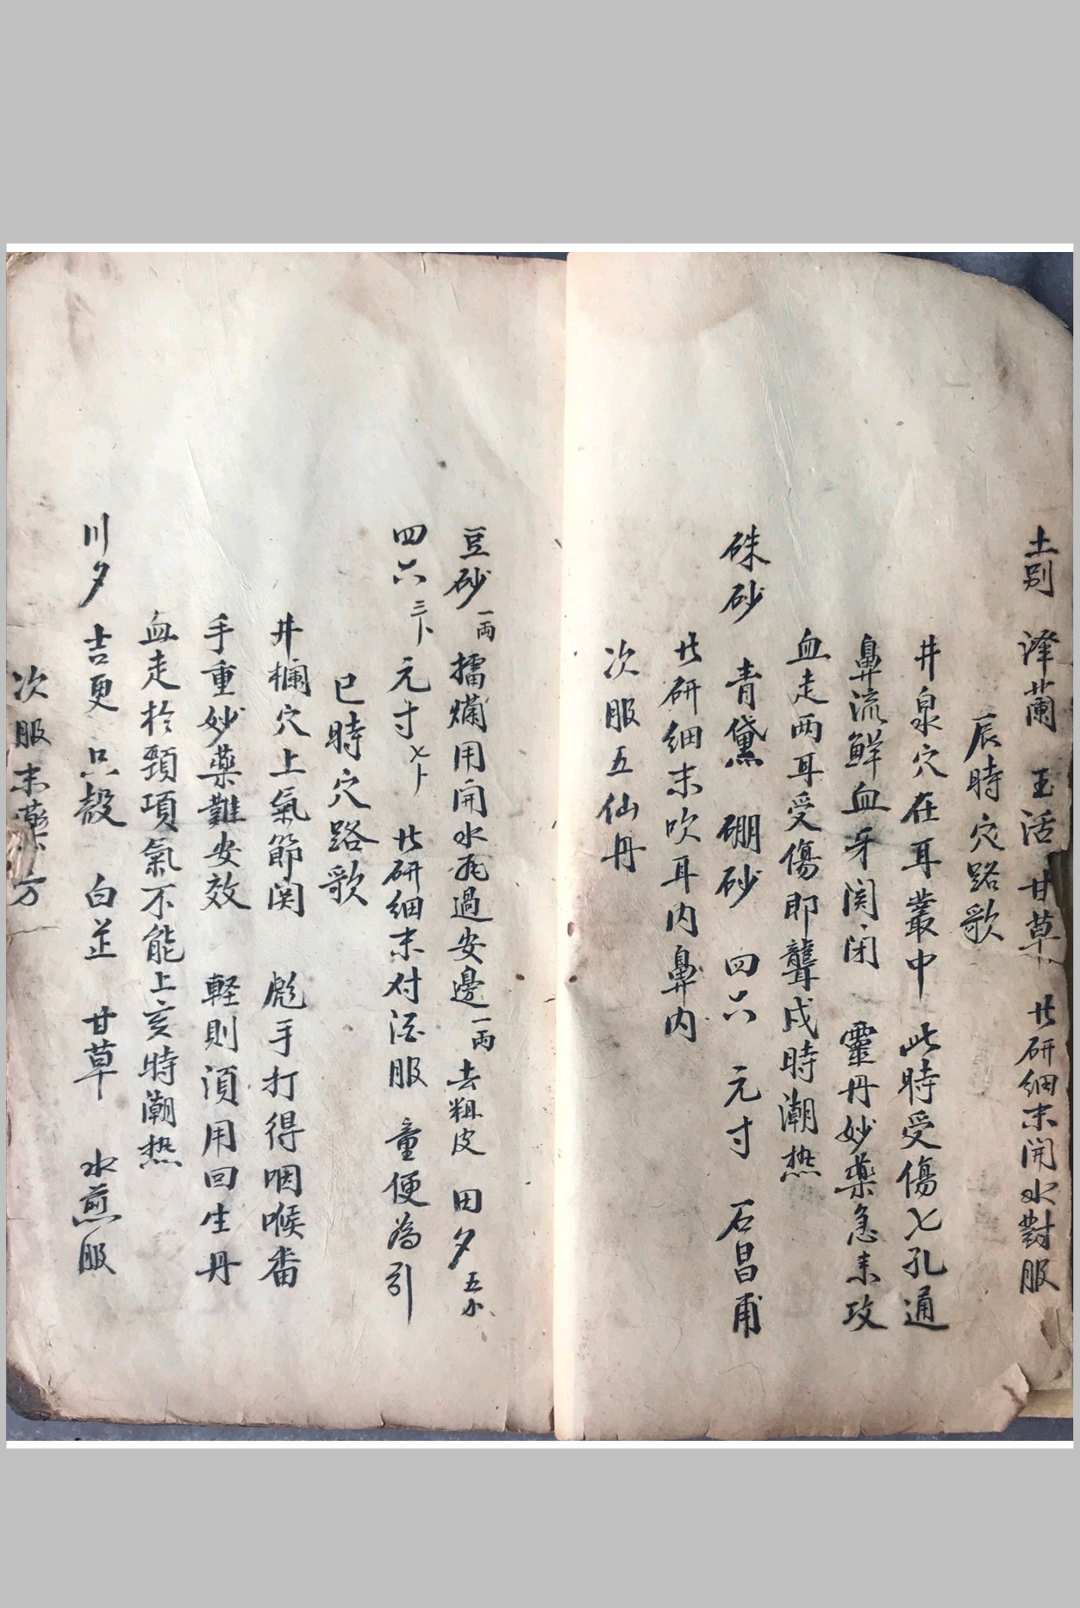 土别 澤蘭 玉活 甘草 共研細末開水對服
辰時穴路歌
井泉穴在耳叢中 此時受傷七孔通
鼻流鮮血牙関闭 靈丹妙藥急来攻
血走两耳受傷即聾戌時潮热
硃砂 青黛 硼砂 四六 元寸 石昌甫
共研細末吹耳内鼻内
次服五仙丹
豆砂一両擂爛用開水飛過安邊一両去粗皮 田夕五小
四六三卜元寸七卜 共研細末对酒服 童便為引
巳時穴路歌
井欄穴上氣節関 彪手打得咽喉番
手重妙藥難安效 軽則須用回生丹
血走於頸項氣不能上亥時潮热
川夕 吉更 只殼 白芷 甘草 水煎服
次服末藥方